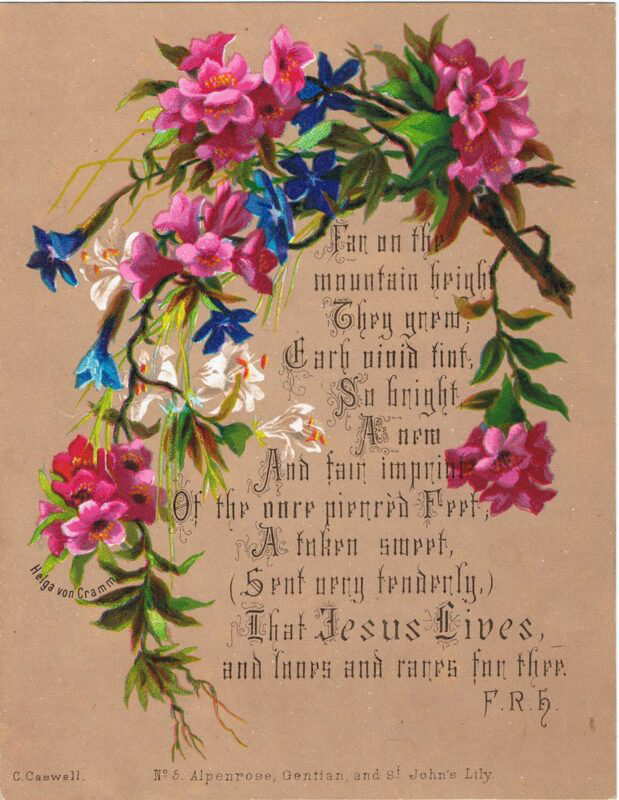 Far on the
mountain height
They grew;
Each vivid tint,
So bright
A new
And fair imprint
Of the once piercèd Feet;
A token sweet,
(Sent very tenderly,)
That Jesus Lives,
and loves and cares for thee.
F. R. H.
Helga von Cramm
C. Caswell.
No 5. Alpenrose, Gentian, and St John's Lily